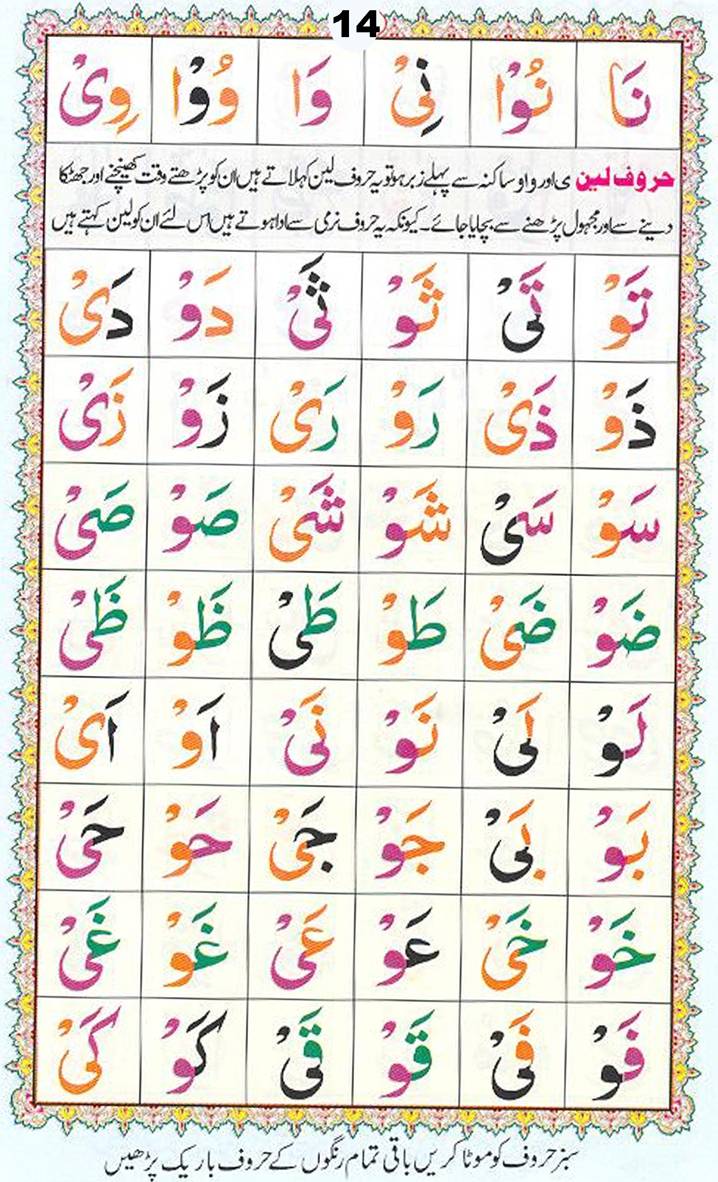 14
نَا نُوْا نِیْ وَا وُوْا وِیْ
حروف لین ی اور و او ساکنہ سے پہلے زبر ہو تو یہ حروف لین کہلاتے ہیں ان کو پڑھتے وقت کھینچنے اور جھٹکا
دینے سے اور مجہول پڑھنے سے بچایا جائے۔ کیونکہ یہ حروف نرمی سے ادا ہوتے ہیں اس لئے ان کو لین کہتے ہیں
تَوْ تَیْ ثَوْ ثَیْ دَوْ دَیْ
ذَوْ ذَیْ رَوْ رَیْ زَوْ زَیْ
سَوْ سَیْ شَوْ شَیْ صَوْ صَیْ
ضَوْ ضَیْ طَوْ طَیْ ظَوْ ظَیْ
لَوْ لَیْ نَوْ نَیْ اَوْ اَیْ
بَوْ بَیْ جَوْ جَیْ حَوْ حَیْ
خَوْ خَیْ عَوْ عَیْ غَوْ غَیْ
فَوْ فَیْ قَوْ قَیْ کَوْ کَیْ
سبز حروف کو موٹا کریں باقی تمام رنگوں کے حروف باریک پڑھیں